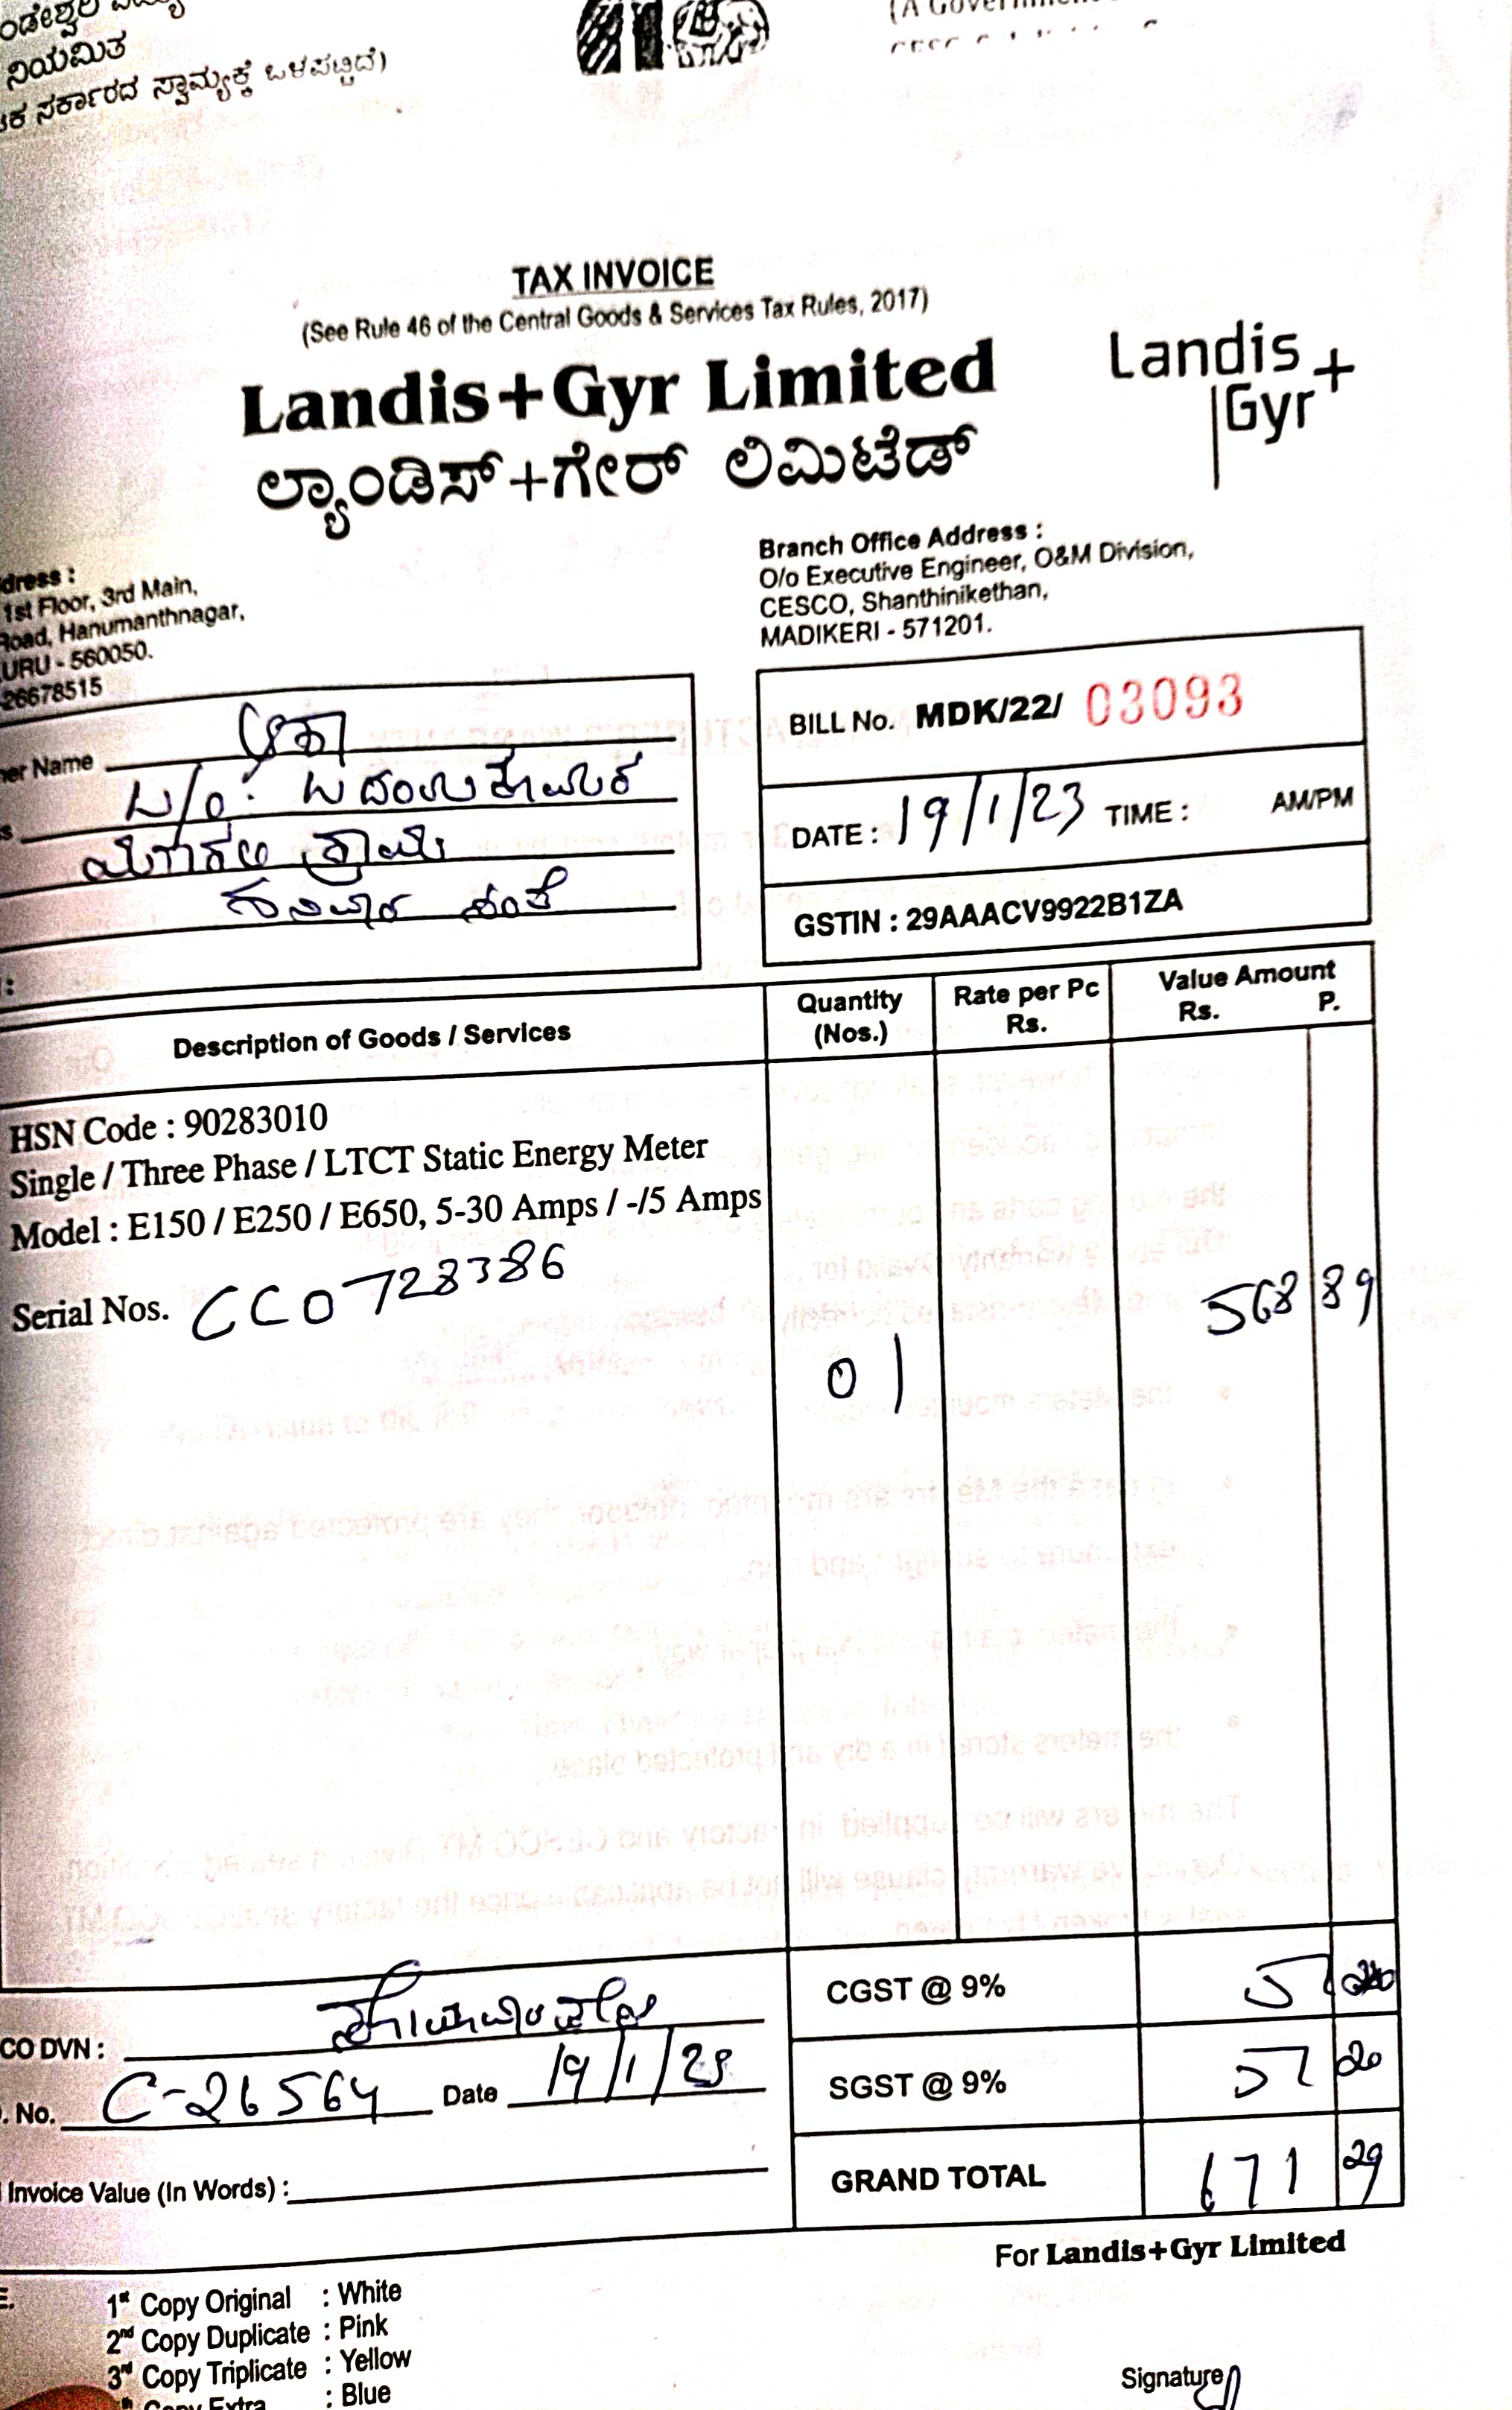 ನಿಯಮಿತ
ಸರ್ಕಾರದ ಸ್ವಾಮ್ಯಕ್ಕೆ ಒಳಪಟ್ಟಿದೆ)
(A Government
TAX INVOICE
(See Rule 46 of the Central Goods & Services Tax Rules, 2017)
Landis+Gyr Limited
ಲ್ಯಾಂಡಿಸ್+ಗೇರ್ ಲಿಮಿಟೆಡ್
Landis
Gyr+
dress :
1st Floor, 3rd Main,
Road, Hanumanthnagar,
URU - 560050.
26678515
Branch Office Address :
O/o Executive Engineer, O&M Division,
CESCO, Shanthinikethan,
MADIKERI - 571201.
ner Name
BILL No. MDK/22/ 03093
DATE : 19/1/23 TIME : AM/PM
GSTIN : 29AAACV9922B1ZA
Description of Goods / Services
Quantity (Nos.)
Rate per Pc Rs.
Value Amount Rs. P.
HSN Code : 90283010
Single / Three Phase / LTCT Static Energy Meter
Model : E150 / E250 / E650, 5-30 Amps / -/5 Amps
Serial Nos. CC0728386
01
568 89
CGST @ 9% 51
SGST @ 9% 51 20
GRAND TOTAL 671 29
CO DVN :
. No. C-26564 Date 19/1/23
Invoice Value (In Words) :
For Landis+Gyr Limited
1st Copy Original : White
2nd Copy Duplicate : Pink
3rd Copy Triplicate : Yellow
Copy Extra : Blue
Signature